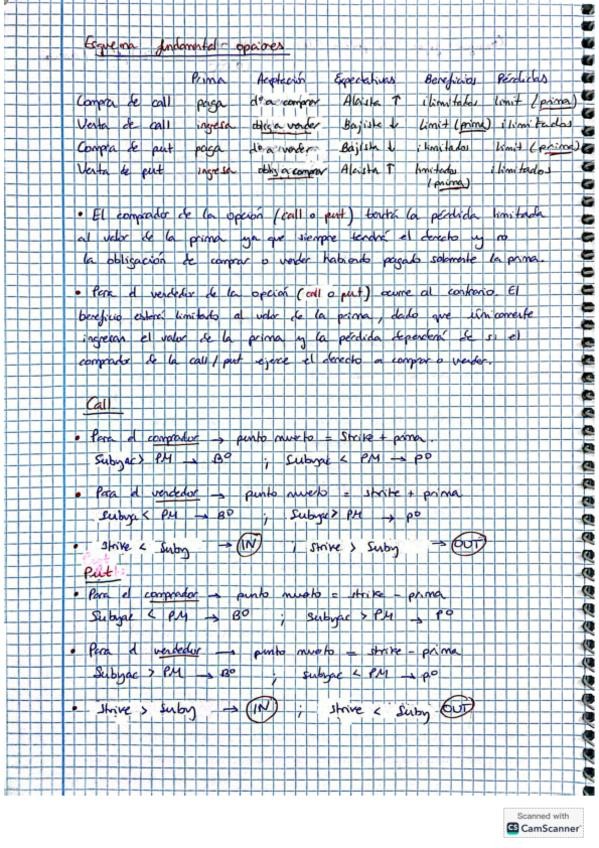 Esquema fundamental - opciones
Prima Aceptación Expectativas Beneficios Pérdidas
Compra de call paga dº a comprar Alcista ↑ ilimitados limit (prima)
Venta de call ingresa oblig a vender Bajista ↓ Limit (prima) ilimitados
Compra de put paga dº a vender Bajista ↓ ilimitados limit (prima)
Venta de put ingresa oblig a comprar Alcista ↑ limitados ilimitados
(prima)
• El comprador de la opción (call o put) tendrá la pérdida limitada
al valor de la prima ya que siempre tendrá el derecho y no
la obligación de comprar o vender habiendo pagado solamente la prima.
• Para el vendedor de la opción (call o put) ocurre al contrario. El
beneficio estará limitado al valor de la prima, dado que únicamente
ingresan el valor de la prima y la pérdida dependerá de si el
comprador de la call / put ejerce el derecho a comprar o vender.
Call
• Para el comprador → punto muerto = Strike + prima.
Subyac > PM → Bº ; Subyac < PM → pº
• Para el vendedor → punto muerto = strike + prima
Subya < PM → Bº ; Subyac > PM → pº
• Strike < Suby → IN ; strike > Suby → OUT
Put:
• Para el comprador → punto muerto = strike - prima
Subyac < PM → Bº ; Subyac > PM → pº
• Para el vendedor → punto muerto = strike - prima
Subyac > PM → Bº ; subyac < PM → pº
• Strike > Suby → IN ; strike < Suby OUT
Scanned with
CS CamScanner